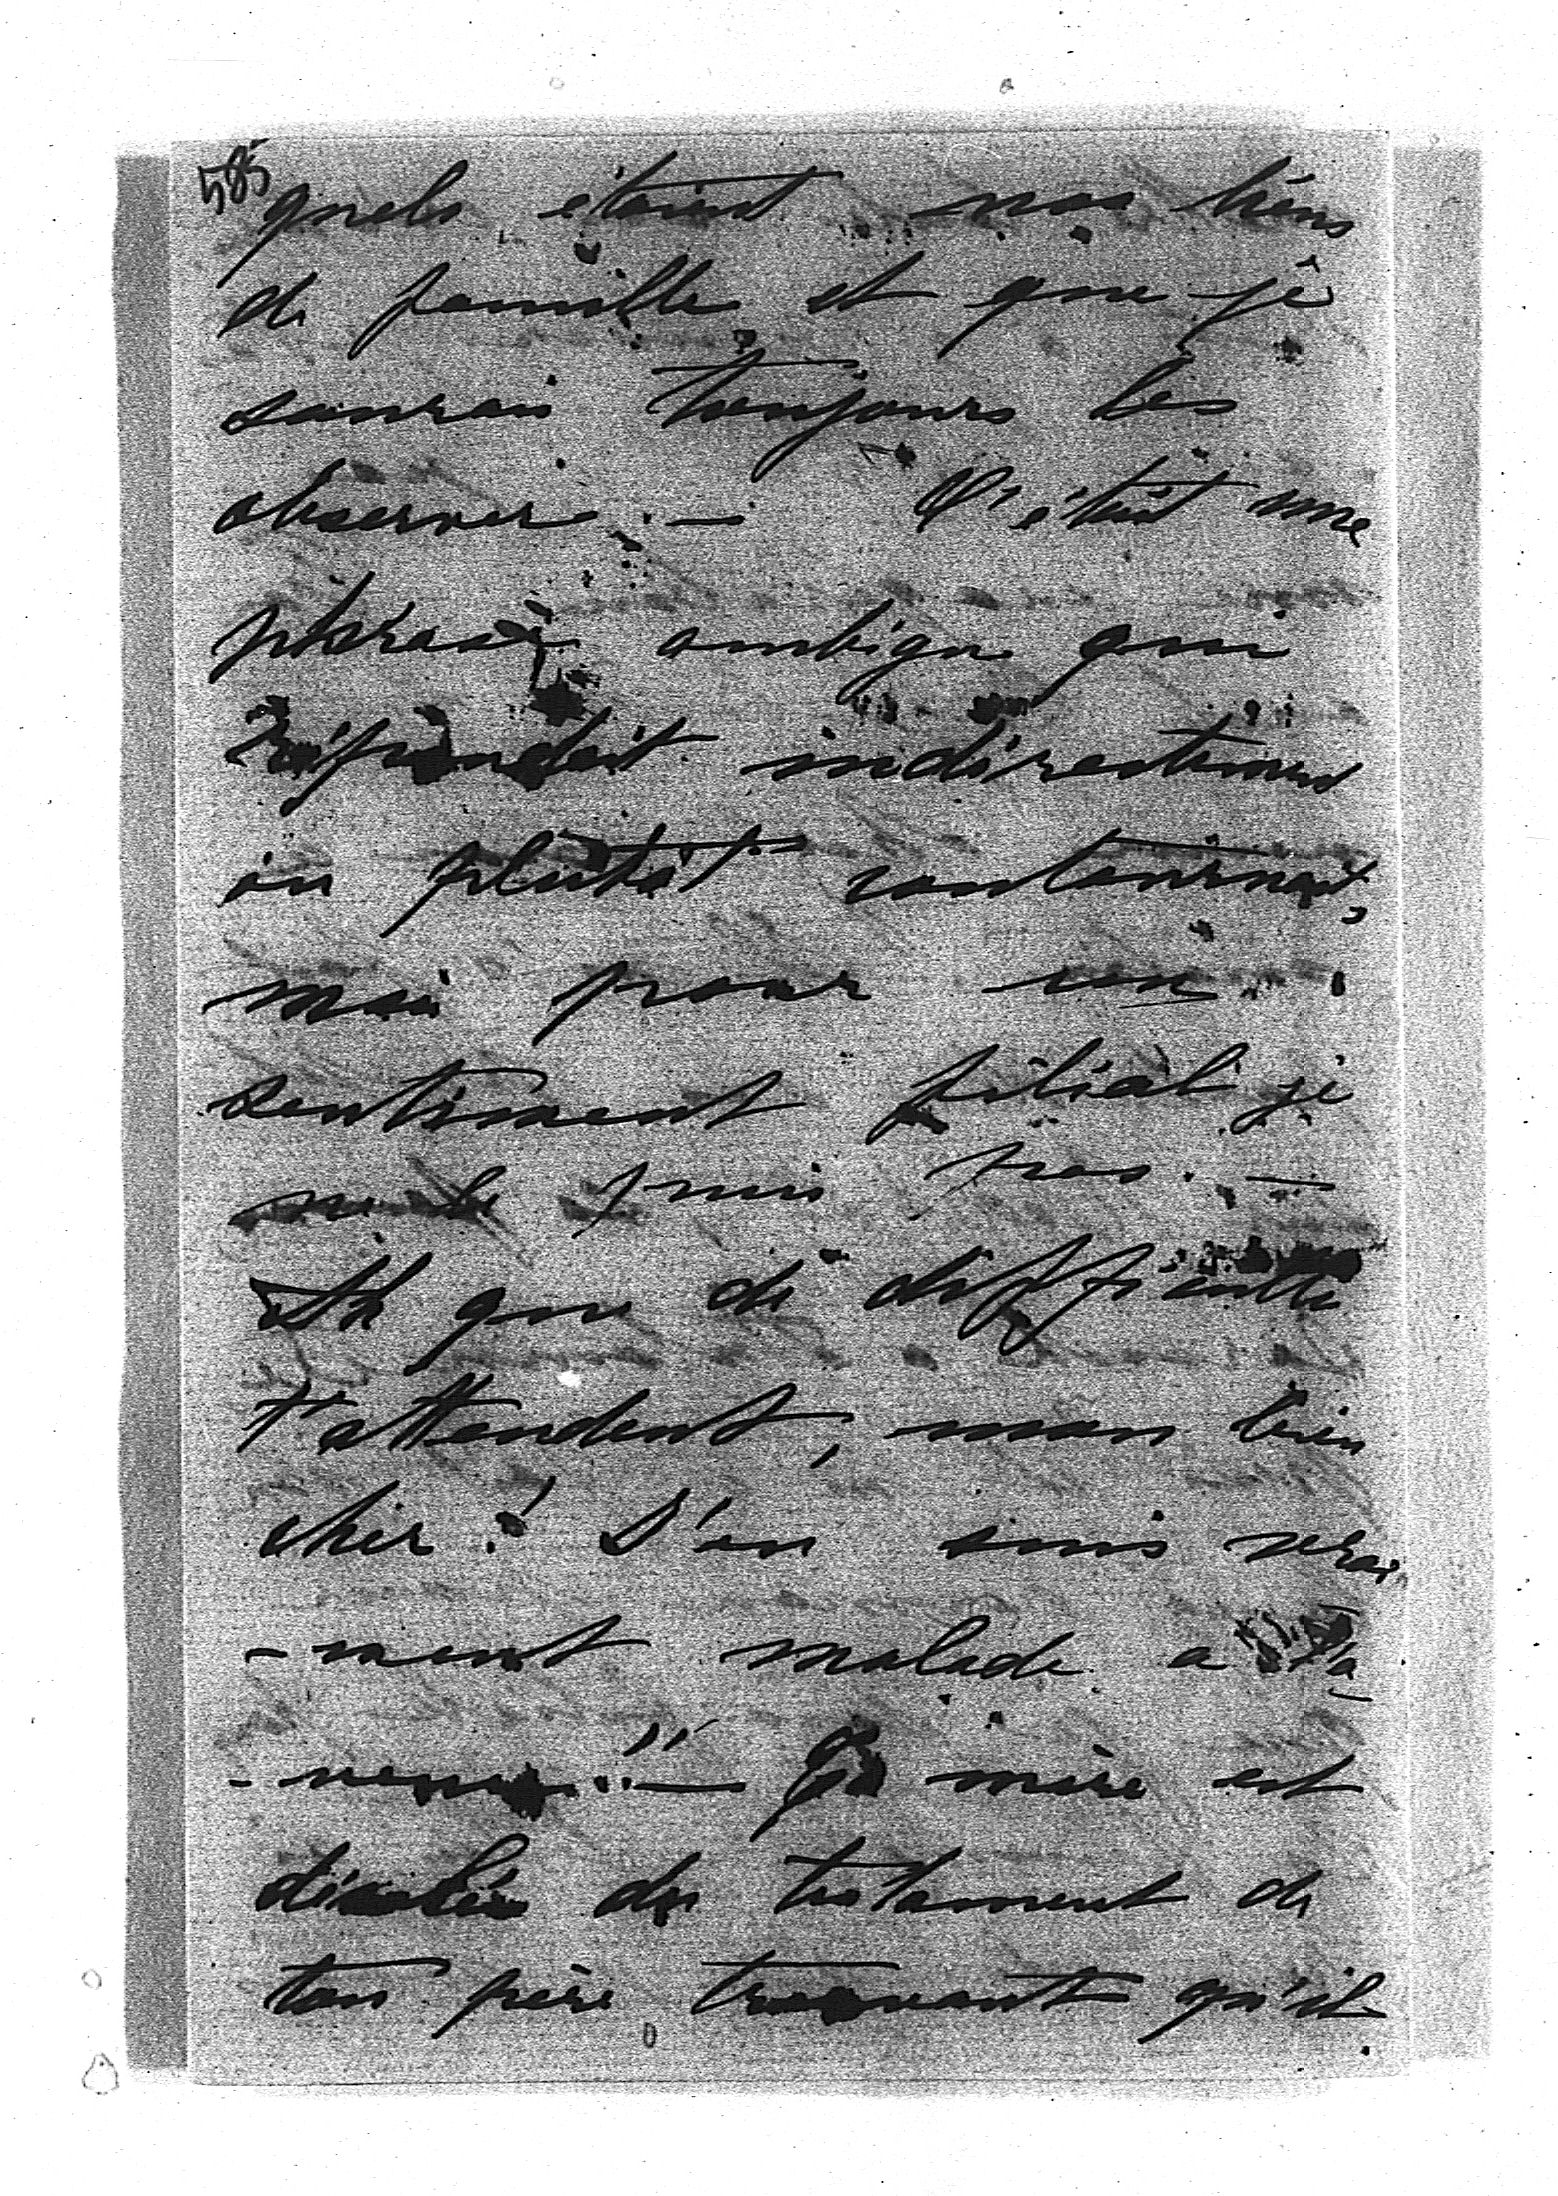 585
quels étaient nos liens
de famille et que je
saurai toujours les
observer. — C'était une
phrase ambigue qui
répondait indirectement
ou plutôt contournait,
mais pour un
sentiment filial je
ne le puis pas. —
Ah que de difficultés
t'attendent, mon bien
cher! J'en suis vrai
-ment malade a l'a
- mère est
désolée du testament de
ton père trouvant qu'il